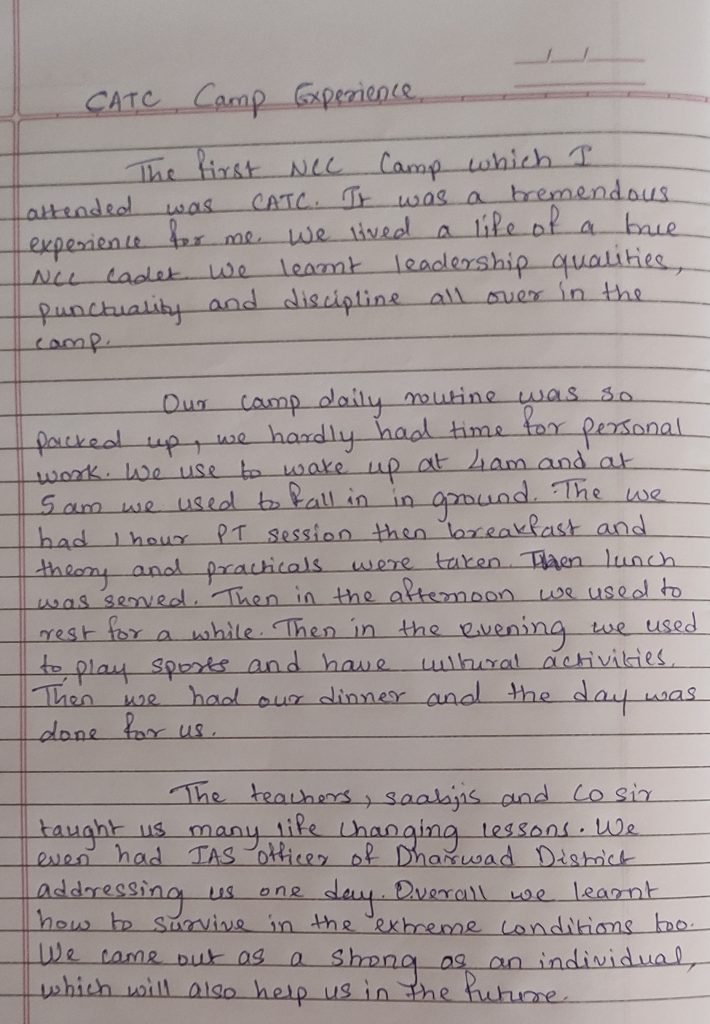 CATC Camp Experience
The first NCC Camp which I
attended was CATC. It was a tremendous
experience for me. We lived a life of a true
NCC Cadet. We learnt leadership qualities,
punctuality and discipline all over in the
camp.
Our camp daily routine was so
packed up, we hardly had time for personal
work. We use to wake up at 4am and at
5am we used to fall in in ground. The we
had 1 hour PT session then breakfast and
theory and practicals were taken. Then lunch
was served. Then in the afternoon we used to
rest for a while. Then in the evening we used
to play sports and have cultural activities.
Then we had our dinner and the day was
done for us.
The teachers, saabjis and CO sir
taught us many life changing lessons. We
even had IAS officer of Dharwad District
addressing us one day. Overall we learnt
how to survive in the extreme conditions too.
We came out as a strong as an individual,
which will also help us in the future.